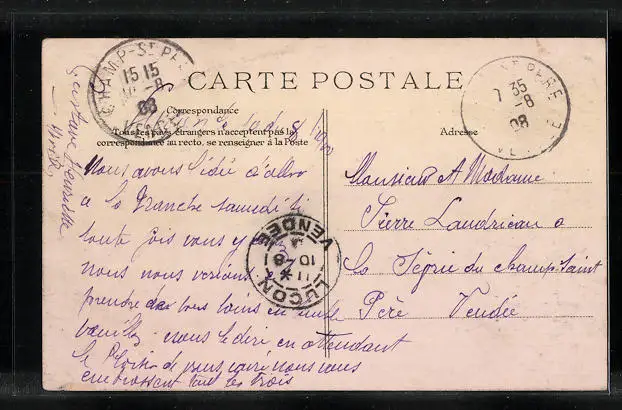 CARTE POSTALE
Correspondance
Tous les pays étrangers n'acceptent pas la
correspondance au recto, se renseigner à la Poste
Adresse
CHAMP-St PÈRE
15 15
-8
08
VENDÉE
St PERE
7 35
-8
08
VENDEE
LUÇON
VENDÉE
11
10 -8
Nous avons l'idée d'aller
a la Tranche samedi si
toute fois vous y
nous nous verrions
prendre des bons bains en
veuillez nous le dire en attendant
le plaisir de vous voir nous vous
embrassent tous les trois
Gustave
Monsieur et Madame
Pierre Landrieau a
la Ségrie du champ Saint
Père Vendée